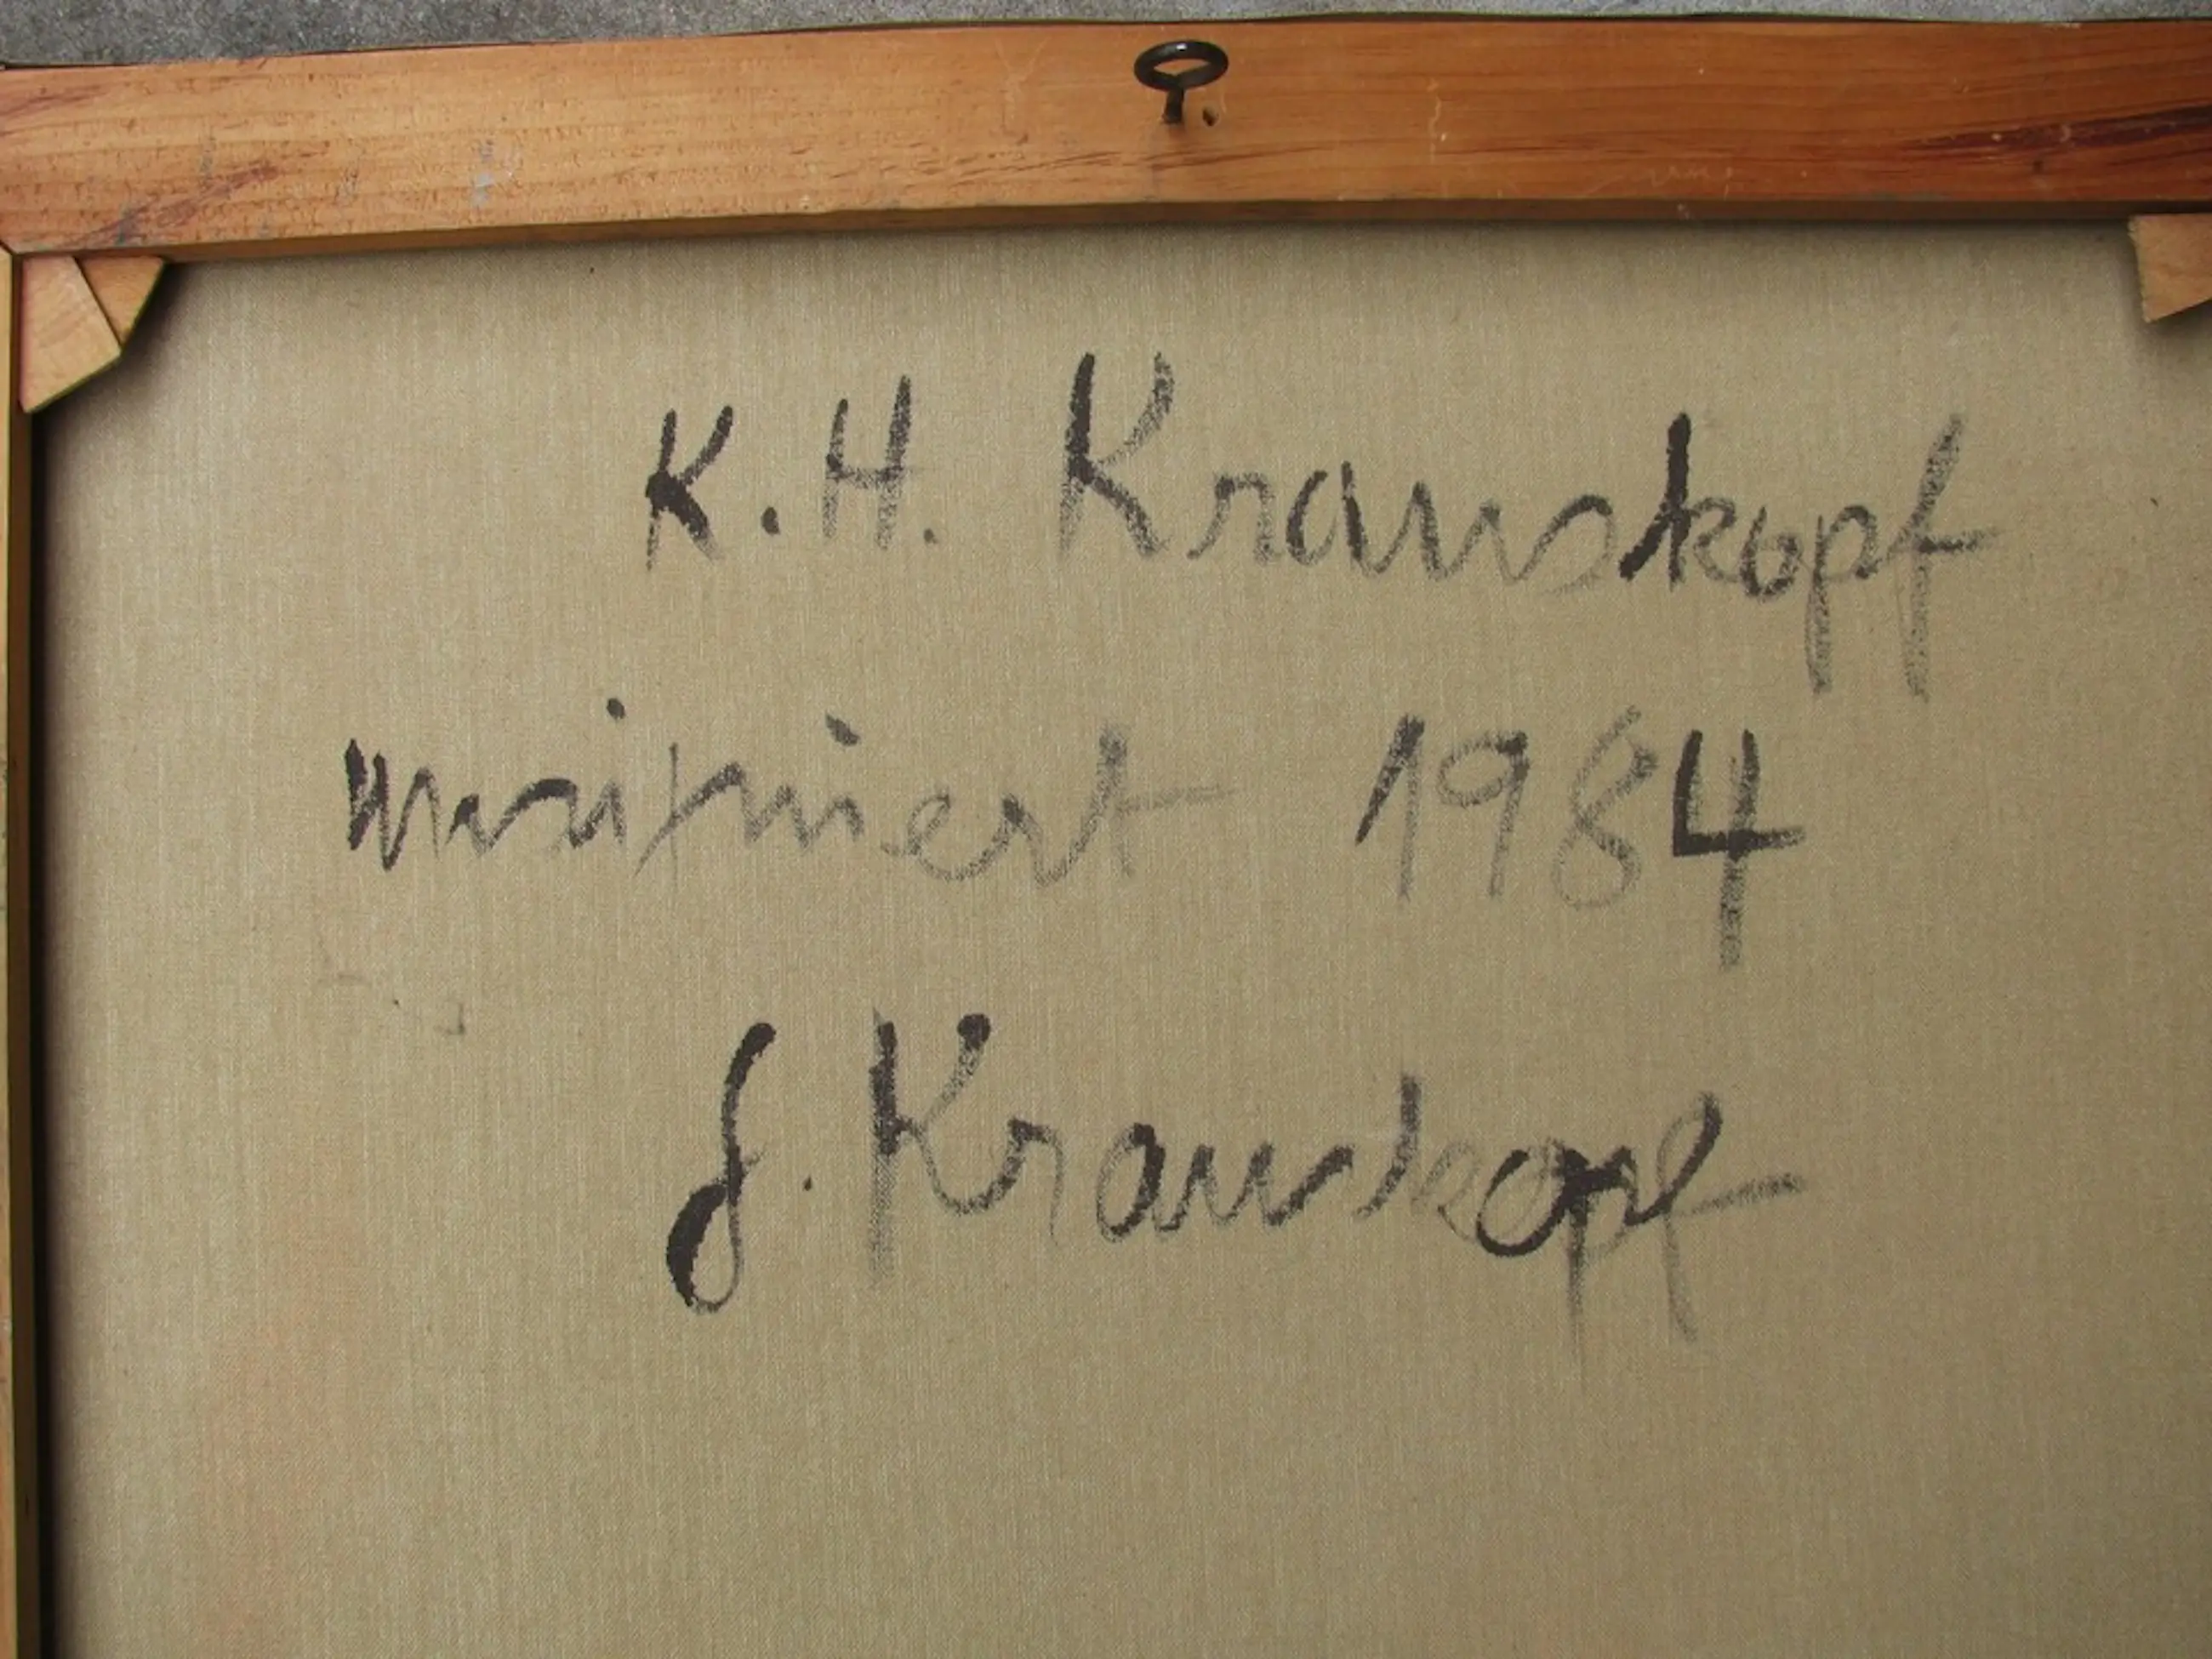 K.H. Krauskopf
verifiziert 1984
J. Krauskopf